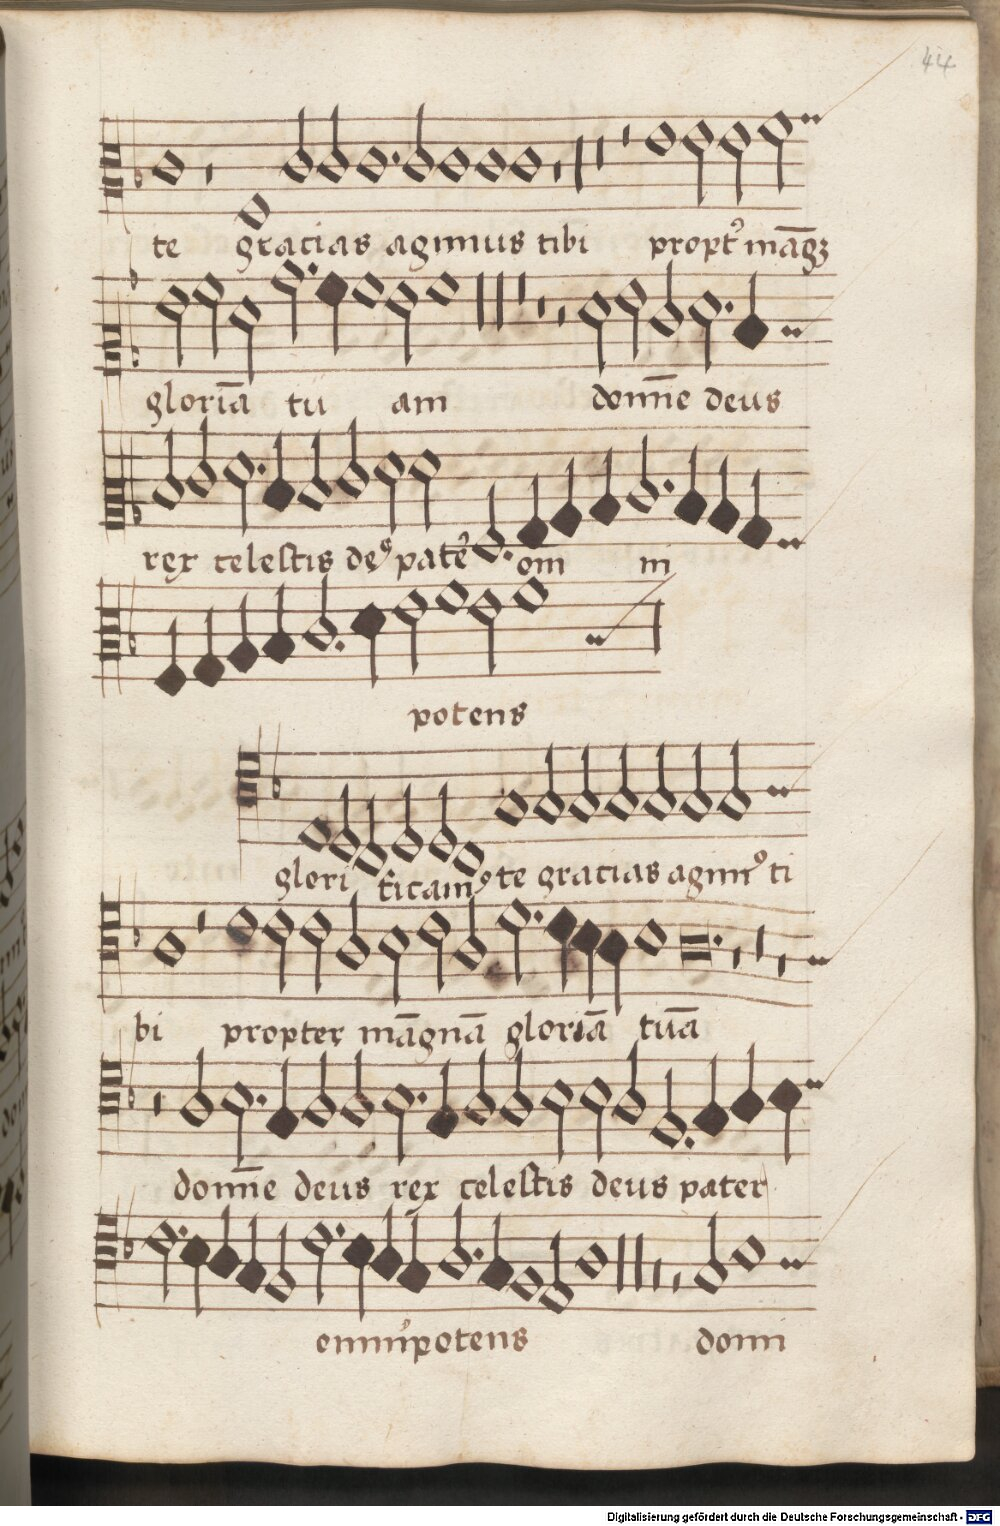 44
te gracias agimus tibi propt᷒ māgꝫ
gloriā tu am dom̄e deus
rex celestis deꝰ pate᷒ om ni
potens
glori ficamꝰ te gracias agimꝰ ti
bi propter māgnā gloriā tuā
dom̄e deus rex celestis deus pater
omnipotens domi
Digitalisierung gefördert durch die Deutsche Forschungsgemeinschaft - DFG